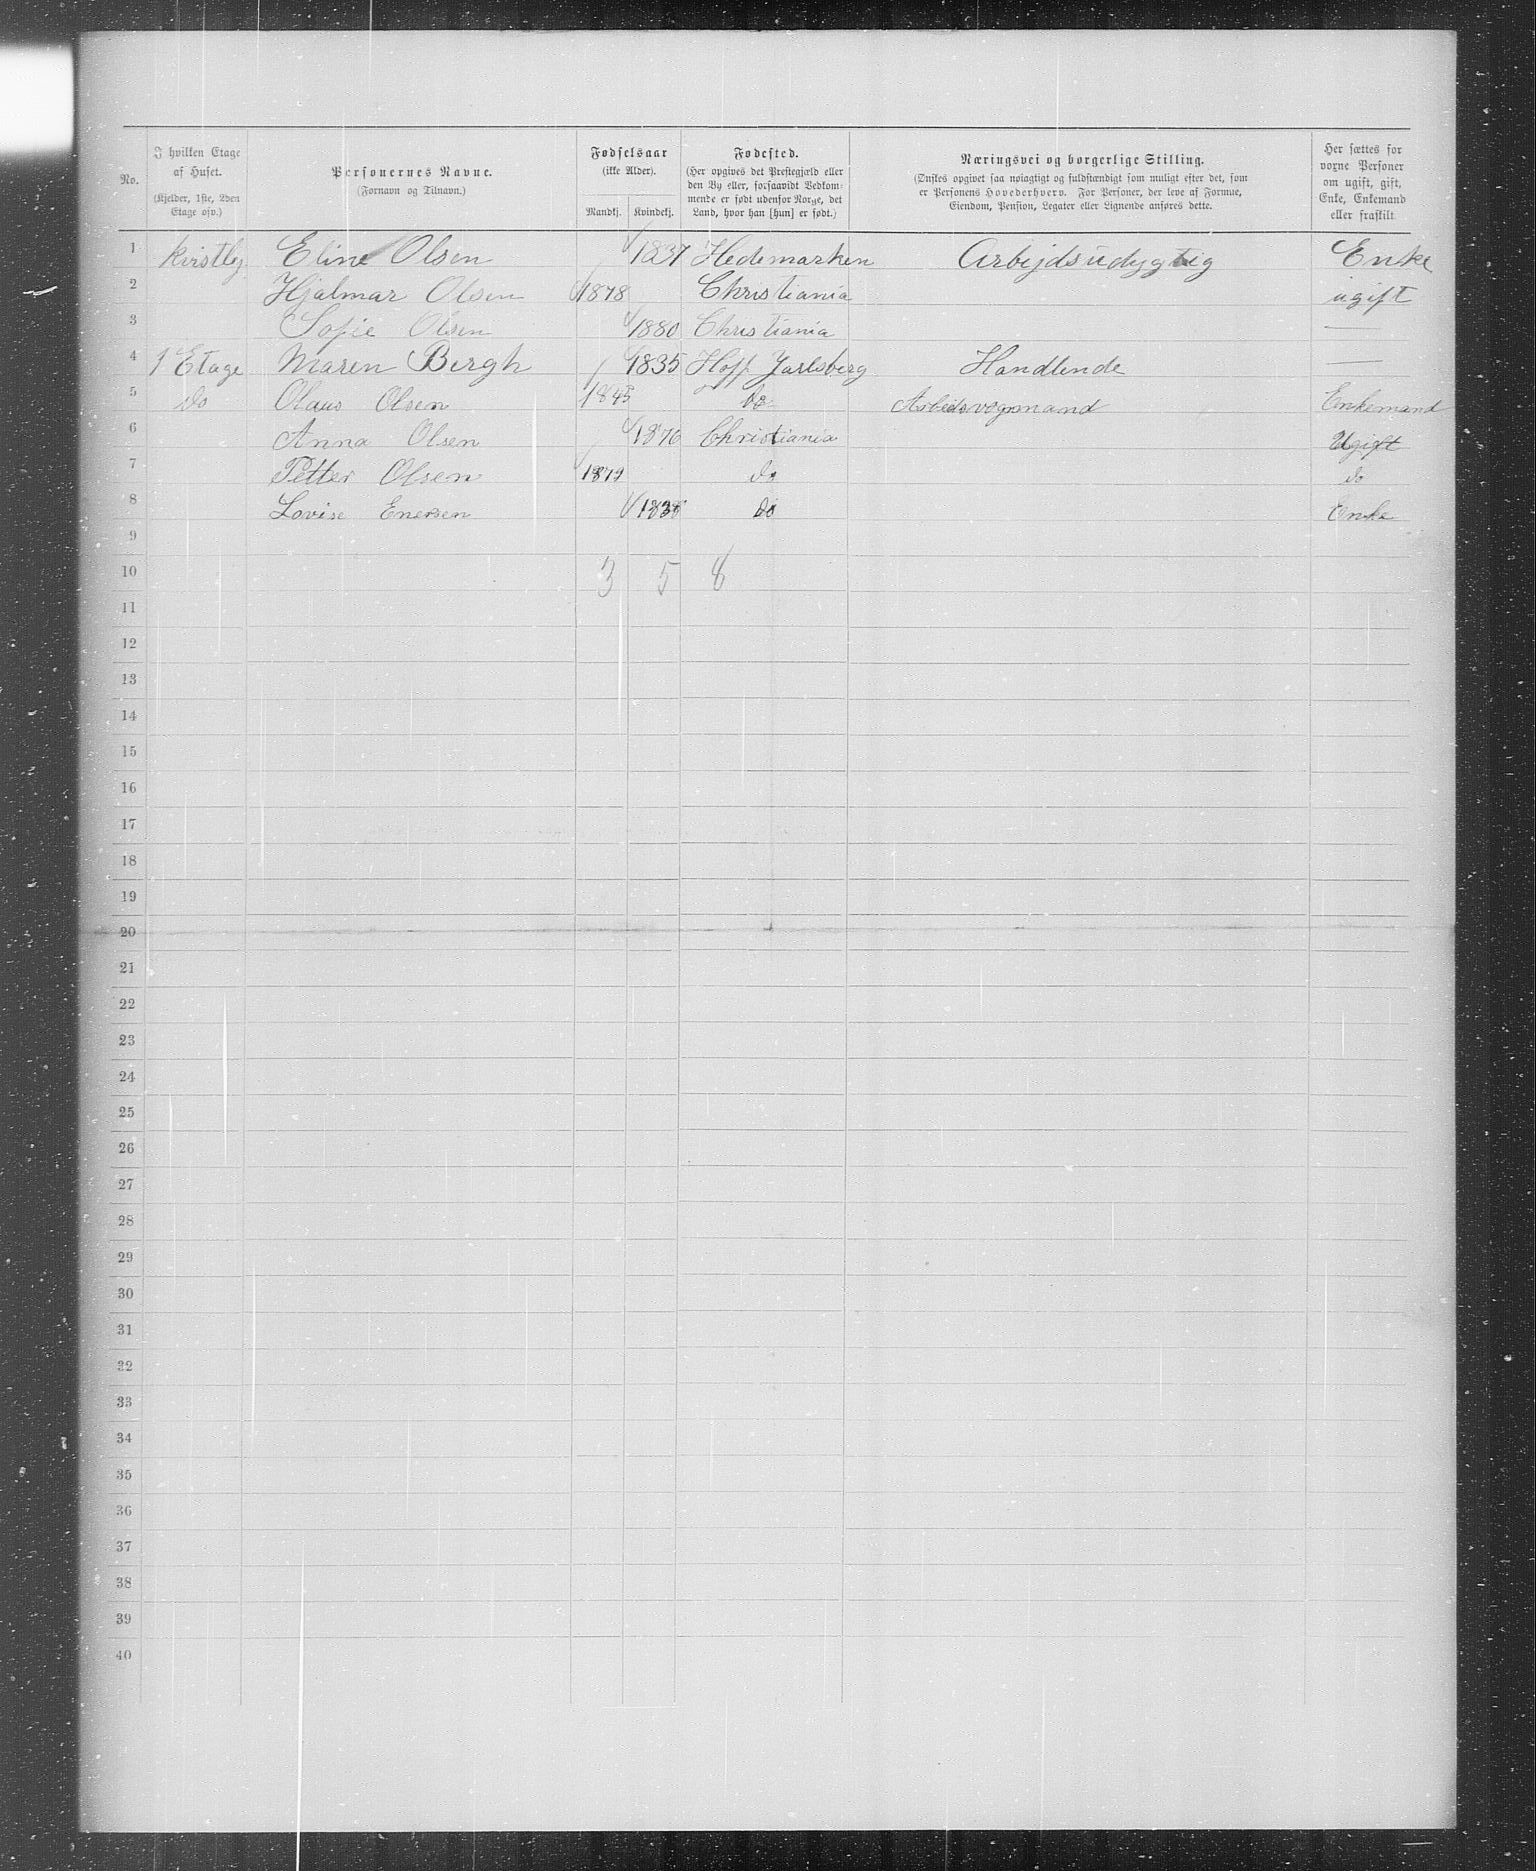 No.
I hvilken Etage af Huset.
(Kjelder, 1ste, 2den Etage osv.)
Personernes Navne.
(Fornavn og Tilnavn.)
Fødselsaar
(ikke Alder).
Mandkj. Kvindekj.
Fødested.
(Her opgives det Prestegjæld eller
den By eller, forsaavidt Vedkom-
mende er født udenfor Norge, det
Land, hvor han [hun] er født.)
Næringsvei og borgerlige Stilling.
(Ønskes opgivet saa nøiagtigt og fuldstændigt som muligt efter det, som
er Personens Hovederhverv. For Personer, der leve af Formue,
Eiendom, Pension, Legater eller Lignende anføres dette.
Her sættes for
voxne Personer
om ugift, gift,
Enke, Enkemand
eller fraskilt.
1 Kvistlej Eline Olsen 1837 Hedemarken Arbejdsudygtig Enke
2 Hjalmar Olsen 1878 Christiania ugift
3 Sofie Olsen 1880 Christiania —
4 1 Etage Maren Bergh 1835 Hoff Jarlsberg Handlende —
5 Do Olaus Olsen 1845 do Arbeidsvognmand Enkemand
6 Anna Olsen 1876 Christiania Ugift
7 Petter Olsen 1879 do do
8 Lovise Enersen 1838 do Enke
9
10 3 5 8
11
12
13
14
15
16
17
18
19
20
21
22
23
24
25
26
27
28
29
30
31
32
33
34
35
36
37
38
39
40